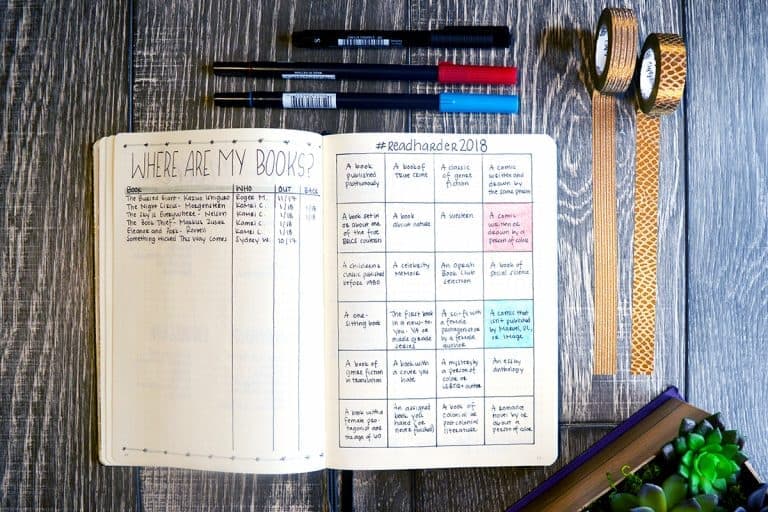 WHERE ARE MY BOOKS?
BOOK WHO OUT BACK
The Buried Giant - Kazuo Ishiguro 11/17
The Night Circus - Morgenstern 1/18
The Sky is Everywhere - Nelson 1/18
The Book Thief - Markus Zusak 1/18
Eleanor and Park - Rowell 1/18
Something Wicked This Way Comes Sydney W. 10/17
#readharder2018
A book
published
posthumously
A book of
true crime
A classic
of genre
fiction
A comic
written and
drawn by
the same person
A book set in
or about one
of the five
BRICS countries
A book
about nature
A western
A comic
written or
drawn by a
person of color
A children's
classic published
before 1980
A celebrity
memoir
An Oprah
Book Club
selection
A book of
social science
A one-
sitting book
The first book
in a new-to-
you YA or
middle grade
series
A sci-fi with
a female
protagonist
by a female
author
A comic that
isn't published
by Marvel, DC,
or Image
A book of
genre fiction
in translation
A book with
a cover you
hate
A mystery by
a person of
color or
LGBTQ+ author
An essay
anthology
A book with a
female pro-
tagonist over
the age of 60
An assigned
book you
hated (or
never finished)
A book of
colonial or
postcolonial
literature
A romance
novel by or
about a
person of color